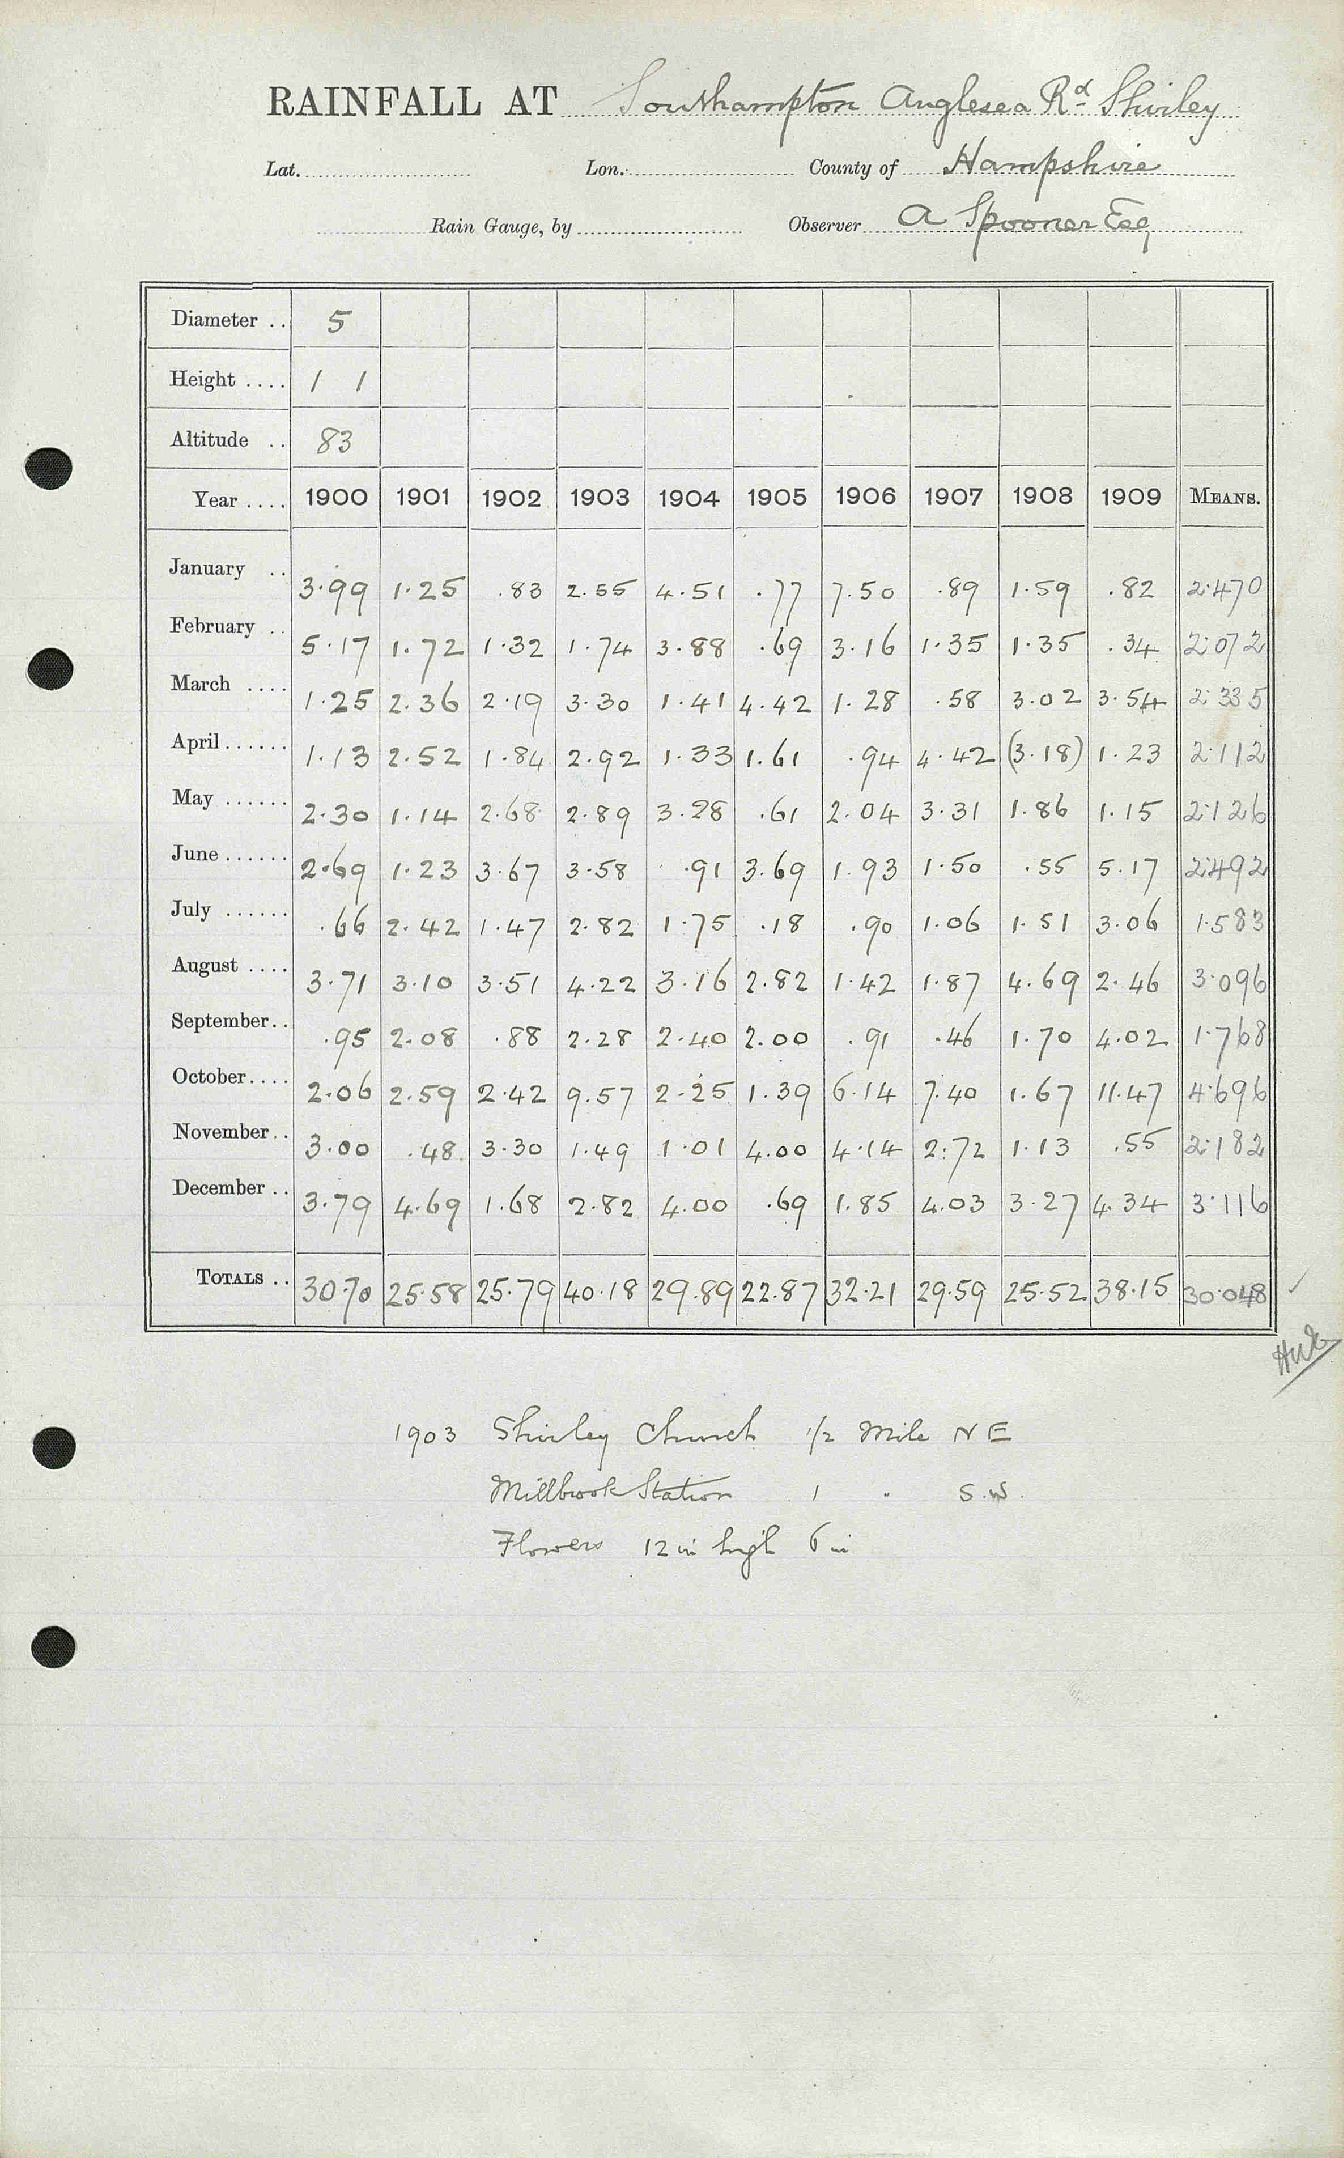 RAINFALL AT Southampton Anglesea Rd Shirley
Lat. Lon. County of Hampshire
Rain Gauge, by Observer A Spooner Esq
Diameter .. 5
Height .... 1 1
Altitude .. 83
Year .... 1900 1901 1902 1903 1904 1905 1906 1907 1908 1909 MEANS.
January .. 3.99 1.25 .83 2.55 4.51 .77 7.50 .89 1.59 .82 2.470
February .. 5.17 1.72 1.32 1.74 3.88 .69 3.16 1.35 1.35 .34 2.072
March .... 1.25 2.36 2.19 3.30 1.41 4.42 1.28 .58 3.02 3.54 2.335
April ...... 1.13 2.52 1.84 2.92 1.33 1.61 .94 4.42 (3.18) 1.23 2.112
May ...... 2.30 1.14 2.68 2.89 3.28 .61 2.04 3.31 1.86 1.15 2.126
June ...... 2.69 1.23 3.67 3.58 .91 3.69 1.93 1.50 .55 5.17 2.492
July ...... .66 2.42 1.47 2.82 1.75 .18 .90 1.06 1.51 3.06 1.583
August .... 3.71 3.10 3.51 4.22 3.16 2.82 1.42 1.87 4.69 2.46 3.096
September.. .95 2.08 .88 2.28 2.40 2.00 .91 .46 1.70 4.02 1.768
October.... 2.06 2.59 2.42 9.57 2.25 1.39 6.14 7.40 1.67 11.47 4.696
November.. 3.00 .48 3.30 1.49 1.01 4.00 4.14 2.72 1.13 .55 2.182
December .. 3.79 4.69 1.68 2.82 4.00 .69 1.85 4.03 3.27 4.34 3.116
TOTALS .. 30.70 25.58 25.79 40.18 29.89 22.87 32.21 29.59 25.52 38.15 30.048 ✓
1903 Shirley Church 1/2 Mile N E
Millbrook Station 1 " S.W
Flowers 12 in high 6 in